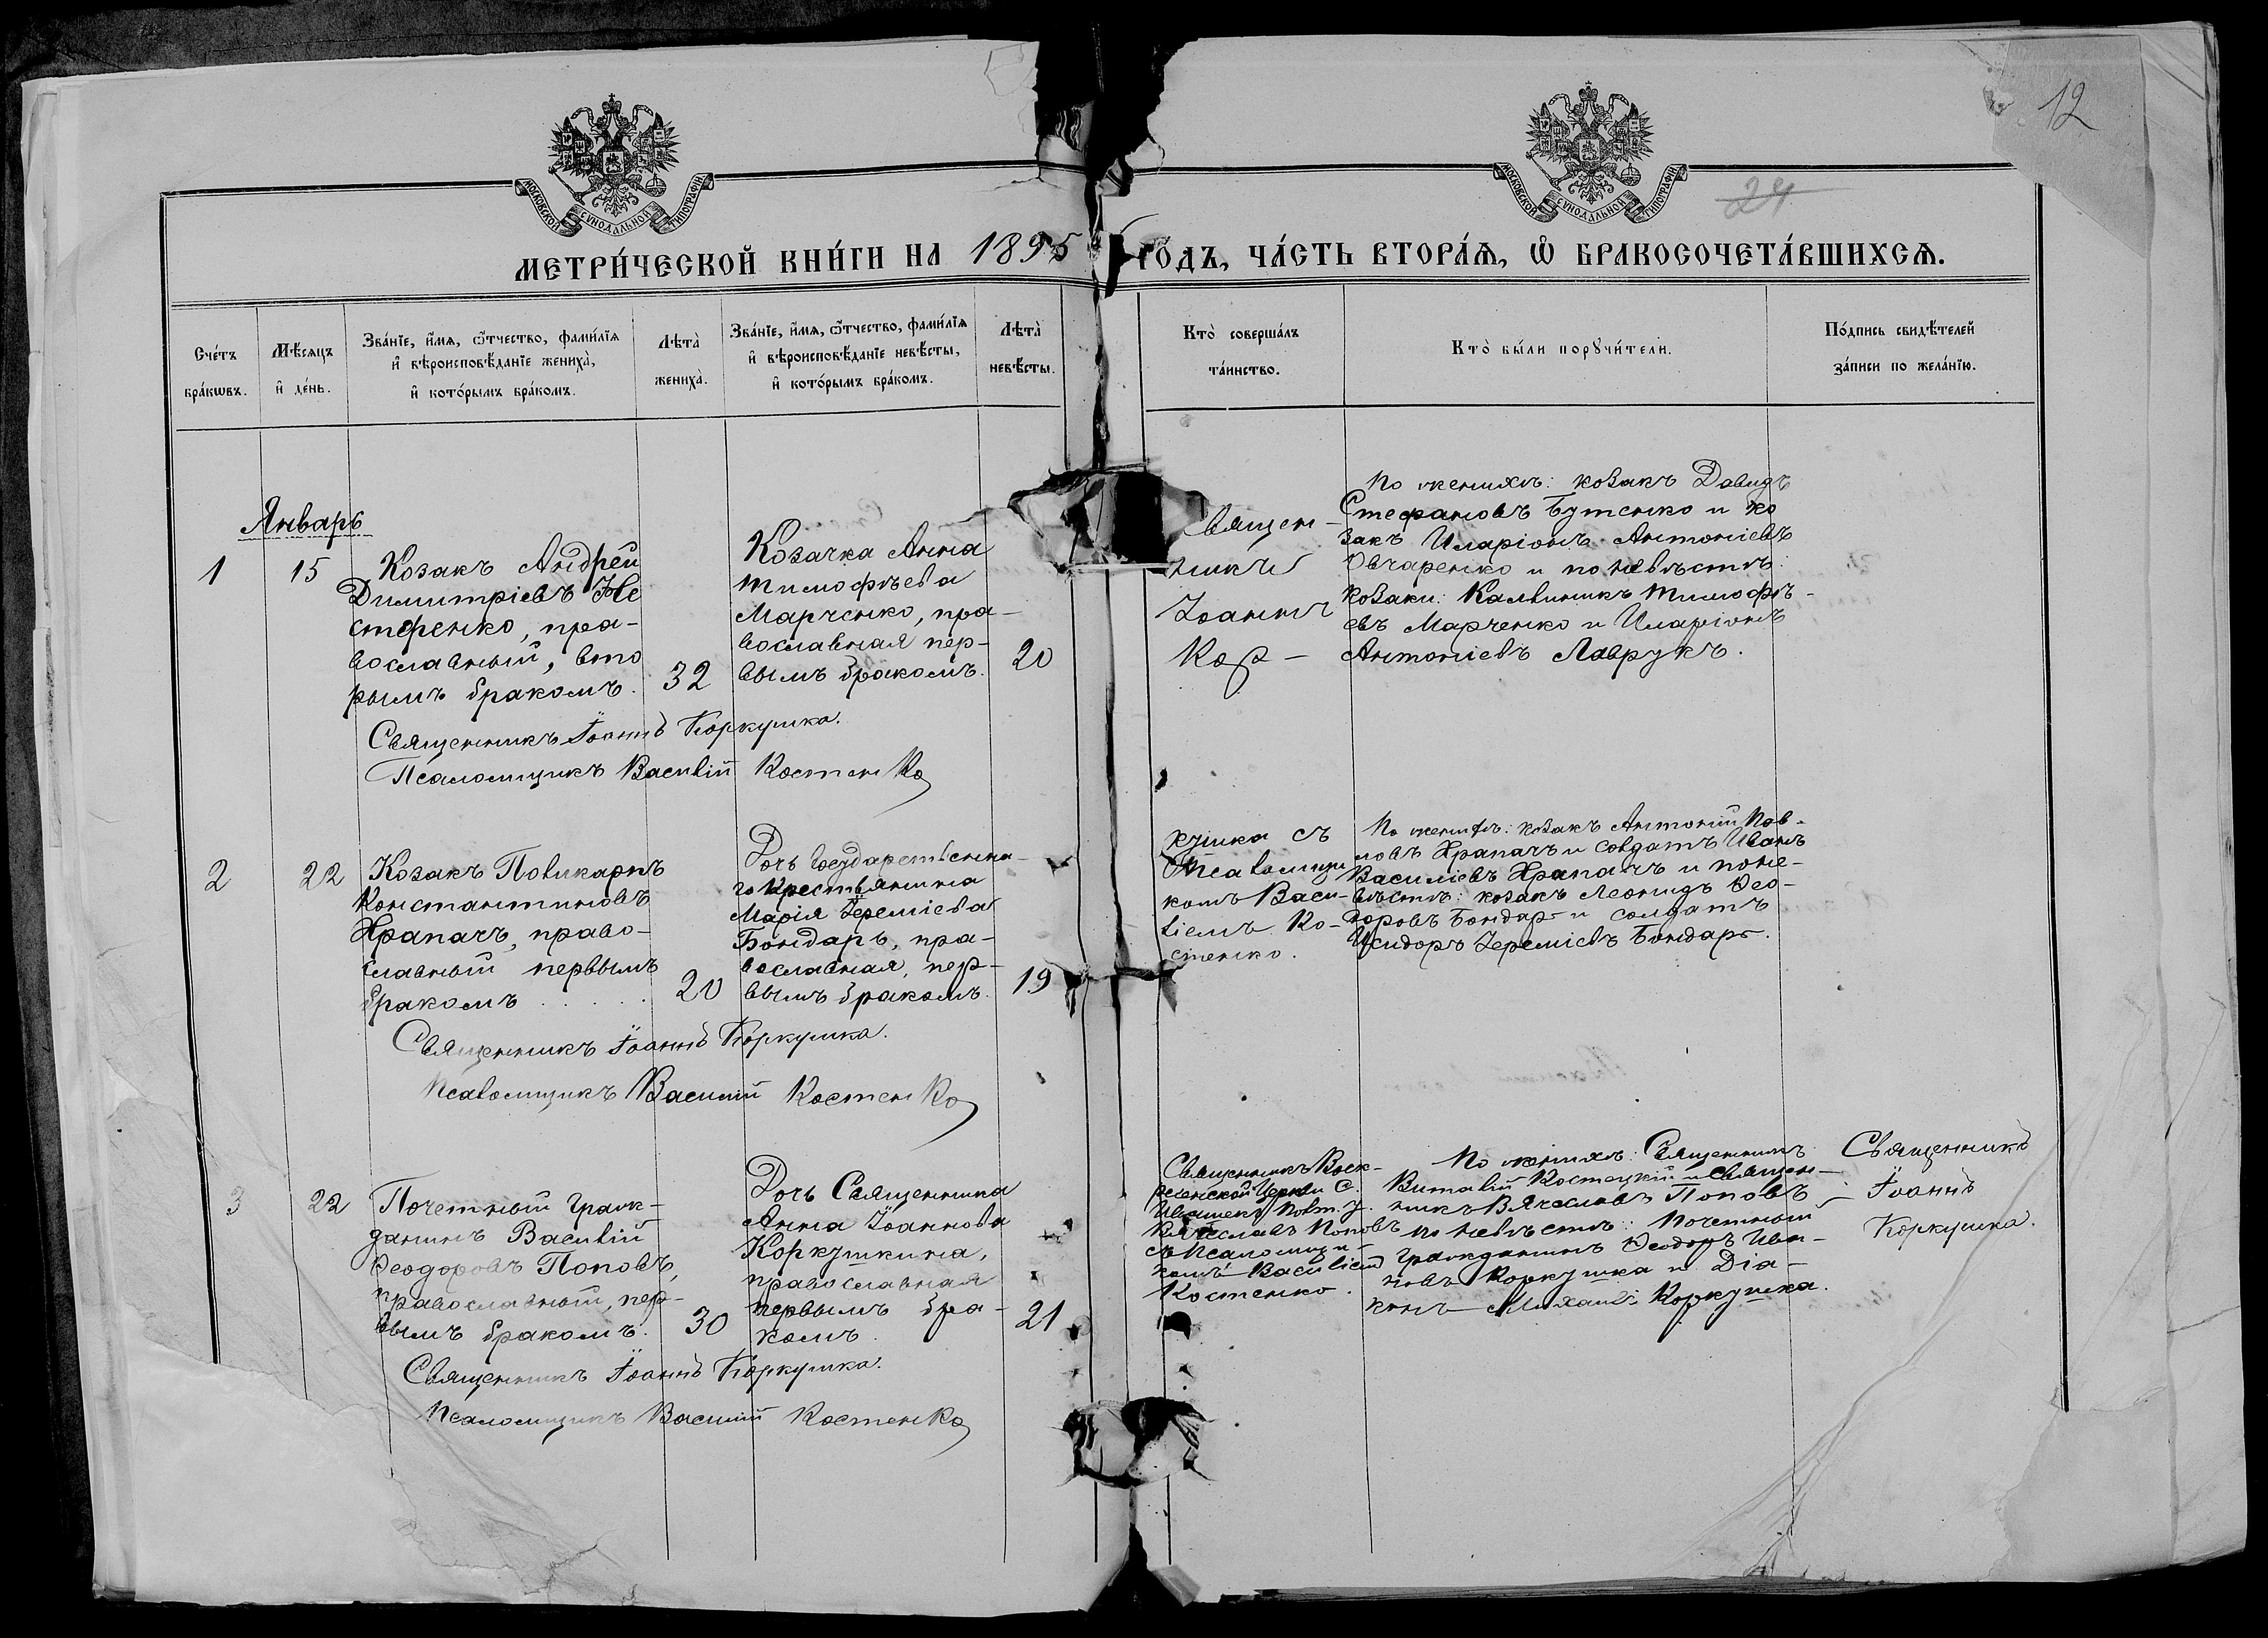 12
МОСКОВСКОЙ СѴНОДАЛЬНОЙ ТИПОГРАФІИ
МОСКОВСКОЙ СѴНОДАЛЬНОЙ ТИПОГРАФІИ
24
МЕТРИ́ЧЕСКОЙ КНИ́ГИ НА 1895 ГО́ДЪ, ЧА́СТЬ ВТОРА́Я, Ѡ҆ БРАКОСОЧЕТА́ВШИХСѦ.
Сче́тъ
бра́кѡвъ.
Мѣ́сяцъ
и҆ де́нь.
Зва́нїе, и҆́мѧ, ѻ҆́тчество, фами́лїѧ
и҆ вѣроисповѣ́данїе жениха̀,
и҆ кото́рымъ бра́комъ.
Лѣта̀
жениха̀.
Зва́нїе, и҆́мѧ, ѻ҆́тчество, фами́лїѧ
и҆ вѣроисповѣ́данїе невѣ́сты,
и҆ кото́рымъ бра́комъ.
Лѣта̀
невѣ́сты.
Кто̀ соверша́лъ
та́инство.
Кто̀ бы́ли порꙋчи́тели.
По́дпись свидѣ́телей
за́писи по жела́нїю.
Январь
1
15
Козакъ Андрей
Димитріевъ Не
стеренко, пра-
вославный, вто
рымъ бракомъ.
32
Козачка Анна
Тимофѣева
Марченко, пра-
вославная пер-
вымъ бракомъ.
20
Священ-
никъ
Іоаннъ
Кор-
По женихѣ: козакъ Давидъ
Стефановъ Бутенко и ко
закъ Иларіонъ Антоніевъ
Овчаренко и по невѣстѣ:
козаки: Калиникъ Тимофѣ-
евъ Марченко и Иларіонъ
Антоніевъ Лаврукъ.
Священникъ Іоаннъ Коркушка.
Псаломщикъ Василій Костенко
2
22
Козакъ Поликарпъ
Константиновъ
Храпачъ, право-
славный первымъ
бракомъ
20
Дочь Государственна-
го Крестьянина
Марія Іереміева
Бондарь, пра-
вославная, пер-
вымъ бракомъ.
19
кушка съ
Псаломщи
комъ Васи-
ліемъ Ко-
стенко.
По женихѣ: козакъ Антоній Пав-
ловъ Храпачъ и солдатъ Иванъ
Василіевъ Храпачъ и по не-
вѣстѣ: козакъ Леонидъ Ѳео-
доровъ Бондарь и солдатъ
Исидоръ Іереміевъ Бондарь.
Священникъ Іоаннъ Коркушка.
Псаломщикъ Василій Костенко
3
22
Почетный граж-
данинъ Василій
Ѳеодоровъ Поповъ,
православный, пер-
вымъ бракомъ.
30
Дочь Священника
Анна Іоаннова
Коркушкина,
православная
первымъ бра-
комъ.
21
Священникъ Воск-
ресенской Церкви С.
Ивашекъ Полт. у.
Вячеславъ Поповъ
съ Псаломщи-
комъ Василіемъ
Костенко.
По женихѣ: Священникъ
Виталій Костецкій и Священ-
никъ Вячеславъ Поповъ
по невѣстѣ: Почетный
гражданинъ Ѳеодоръ Ива-
новъ Коркушка и Діа-
конъ Михаилъ Коркушка.
Священникъ
Іоаннъ
Коркушка.
Священникъ Іоаннъ Коркушка.
Псаломщикъ Василій Костенко